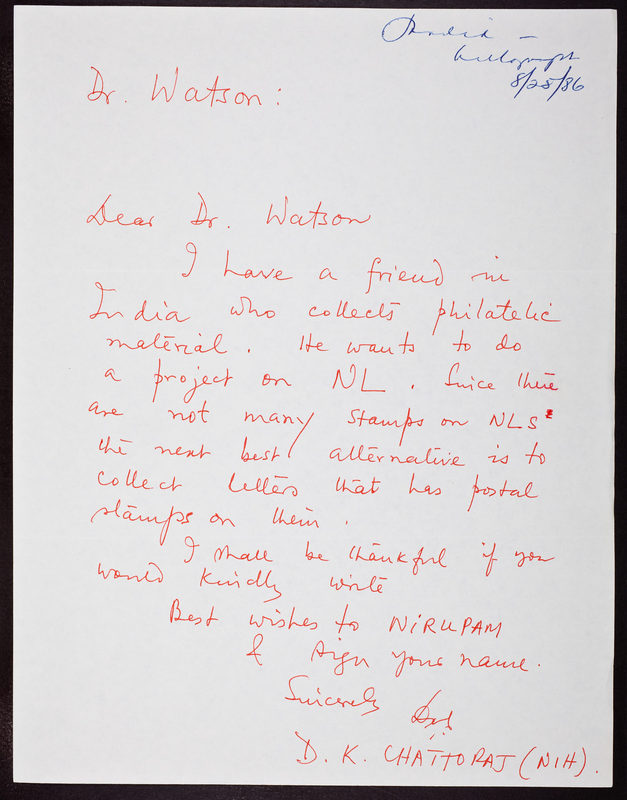 India -
Autograph
8/28/86
Dr. Watson:
Dear Dr. Watson
I have a friend in
India who collects philatelic
material. He wants to do
a project on NL. Since there
are not many stamps on NLS
the next best alternative is to
collect letters that has postal
stamps on them.
I shall be thankful if you
would kindly write
Best wishes to NIRUPAM
& sign your name.
Sincerely
D. K. CHATTORAJ (NIH).